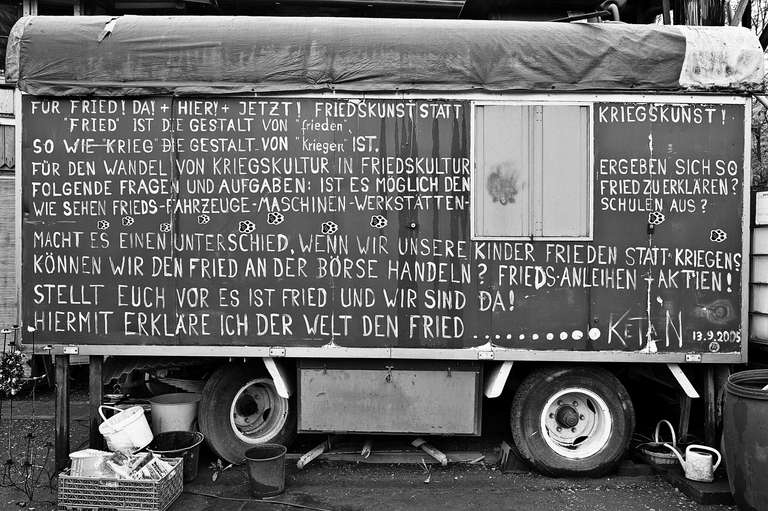 FÜR FRIED! DA! + HIER! + JETZT! FRIEDSKUNST STATT KRIEGSKUNST!
"FRIED" IST DIE GESTALT VON "frieden",
SO WIE "KRIEG" DIE GESTALT VON "Kriegen" IST.
FÜR DEN WANDEL VON KRIEGSKULTUR IN FRIEDSKULTUR ERGEBEN SICH SO
FOLGENDE FRAGEN UND AUFGABEN: IST ES MÖGLICH DEN FRIED ZU ERKLÄREN?
WIE SEHEN FRIEDS-FAHRZEUGE-MASCHINEN-WERKSTÄTTEN- SCHULEN AUS?
MACHT ES EINEN UNTERSCHIED, WENN WIR UNSERE KINDER FRIEDEN STATT KRIEGEN?
KÖNNEN WIR DEN FRIED AN DER BÖRSE HANDELN? FRIEDS-ANLEIHEN-AKTIEN!
STELLT EUCH VOR ES IST FRIED UND WIR SIND DA!
HIERMIT ERKLÄRE ICH DER WELT DEN FRIED .......... KETAN 13.9.2005